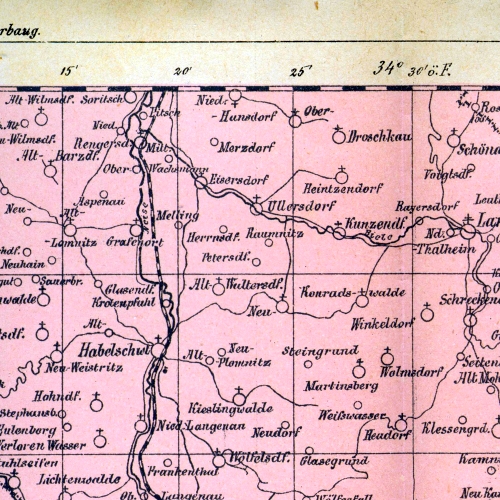 rbaug.
15'
20'
25'
34° 30' ö.F.
Alt-Wilmsdf.
Soritsch
Nied.-
-Hansdorf
Ober-
Pitsch
Nied.
Rengersd.
Mitt.
Droschkau
Merzdorf
Schöna
Alt-
Barzdf.
Ober-
Wachsmann
Eisersdorf
Voigtsdf.
Heintzendorf
Aspenau
Neisse
Ullersdorf
Rayersdorf
Neu-
Alt-
-Lomnitz
Grafenort
Melling
Herrnsdf.
Raumnitz
Kunzendf.
Nd.
Thalheim
Neuhain
Petersdf.
Sauerbr.
Glasendf.
Krotenpfuhl
Alt-
Waltersdf.
Neu-
Konrads-walde
Winkeldorf
Schrecken
Alt-
Habelschwt
Neu-Weistritz
Alt-
Neu-
-Plomnitz
Steingrund
Wolmsdorf
Martinsberg
Seiten
Alt Moh
Hohndf.
Kieslingwalde
Weifswasser
Stephansb.
Heudorf
Klessengrd.
Eulenborg
Nied. Langenau
Neudorf
Verloren Wasser
Wölfelsdf.
Glasegrund
Kamn
Frankenthal
Lichtenwalde
Ob.
Langenau